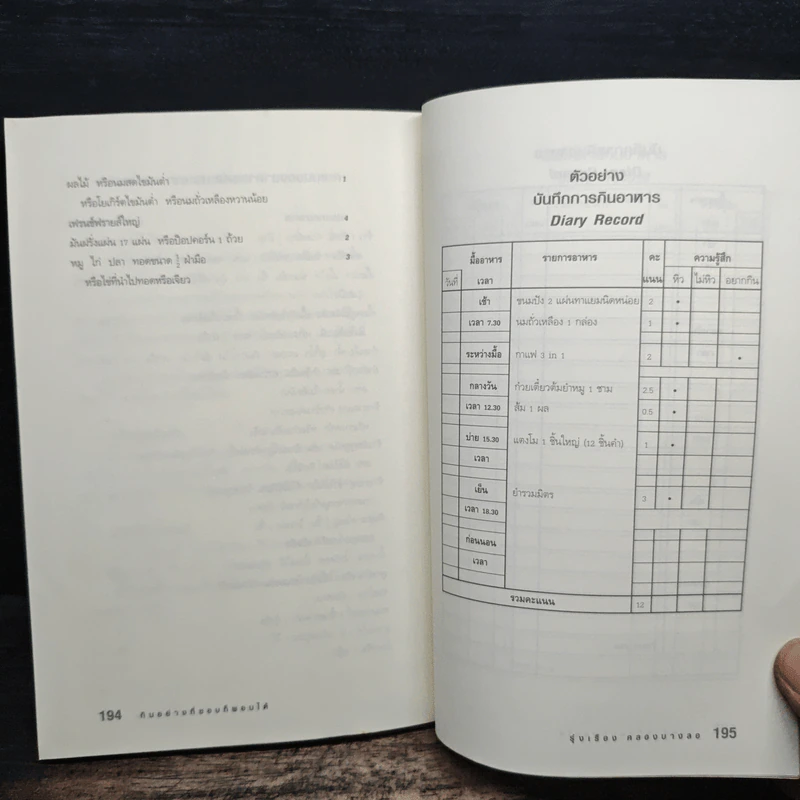 ผลไม้ หรือนมสดไขมันต่ำ 1
หรือโยเกิร์ตไขมันต่ำ หรือนมถั่วเหลืองหวานน้อย
เฟรนช์ฟรายส์ใหญ่ 4
มันฝรั่งแผ่น 17 แผ่น หรือป๊อปคอร์น 1 ถ้วย 2
หมู ไก่ ปลา ทอดขนาด ½ ฝ่ามือ 3
หรือไข่ที่นำไปทอดหรือเจียว
194 กินอย่างที่ชอบก็ผอมได้
ตัวอย่าง
บันทึกการกินอาหาร
Diary Record
มื้ออาหาร รายการอาหาร คะ ความรู้สึก
วันที่ เวลา แนน หิว ไม่หิว อยากกิน
เช้า ขนมปัง 2 แผ่นทาแยมนิดหน่อย 2 •
เวลา 7.30 นมถั่วเหลือง 1 กล่อง 1 •
ระหว่างมื้อ กาแฟ 3 in 1 2 •
กลางวัน ก๋วยเตี๋ยวต้มยำหมู 1 ชาม 2.5 •
เวลา 12.30 ส้ม 1 ผล 0.5 •
บ่าย 15.30 แตงโม 1 ชิ้นใหญ่ (12 ชิ้นคำ) 1 •
เวลา
เย็น ยำรวมมิตร 3 •
เวลา 18.30
ก่อนนอน
เวลา
รวมคะแนน 12
รุ่งเรือง คลองบางลอ 195